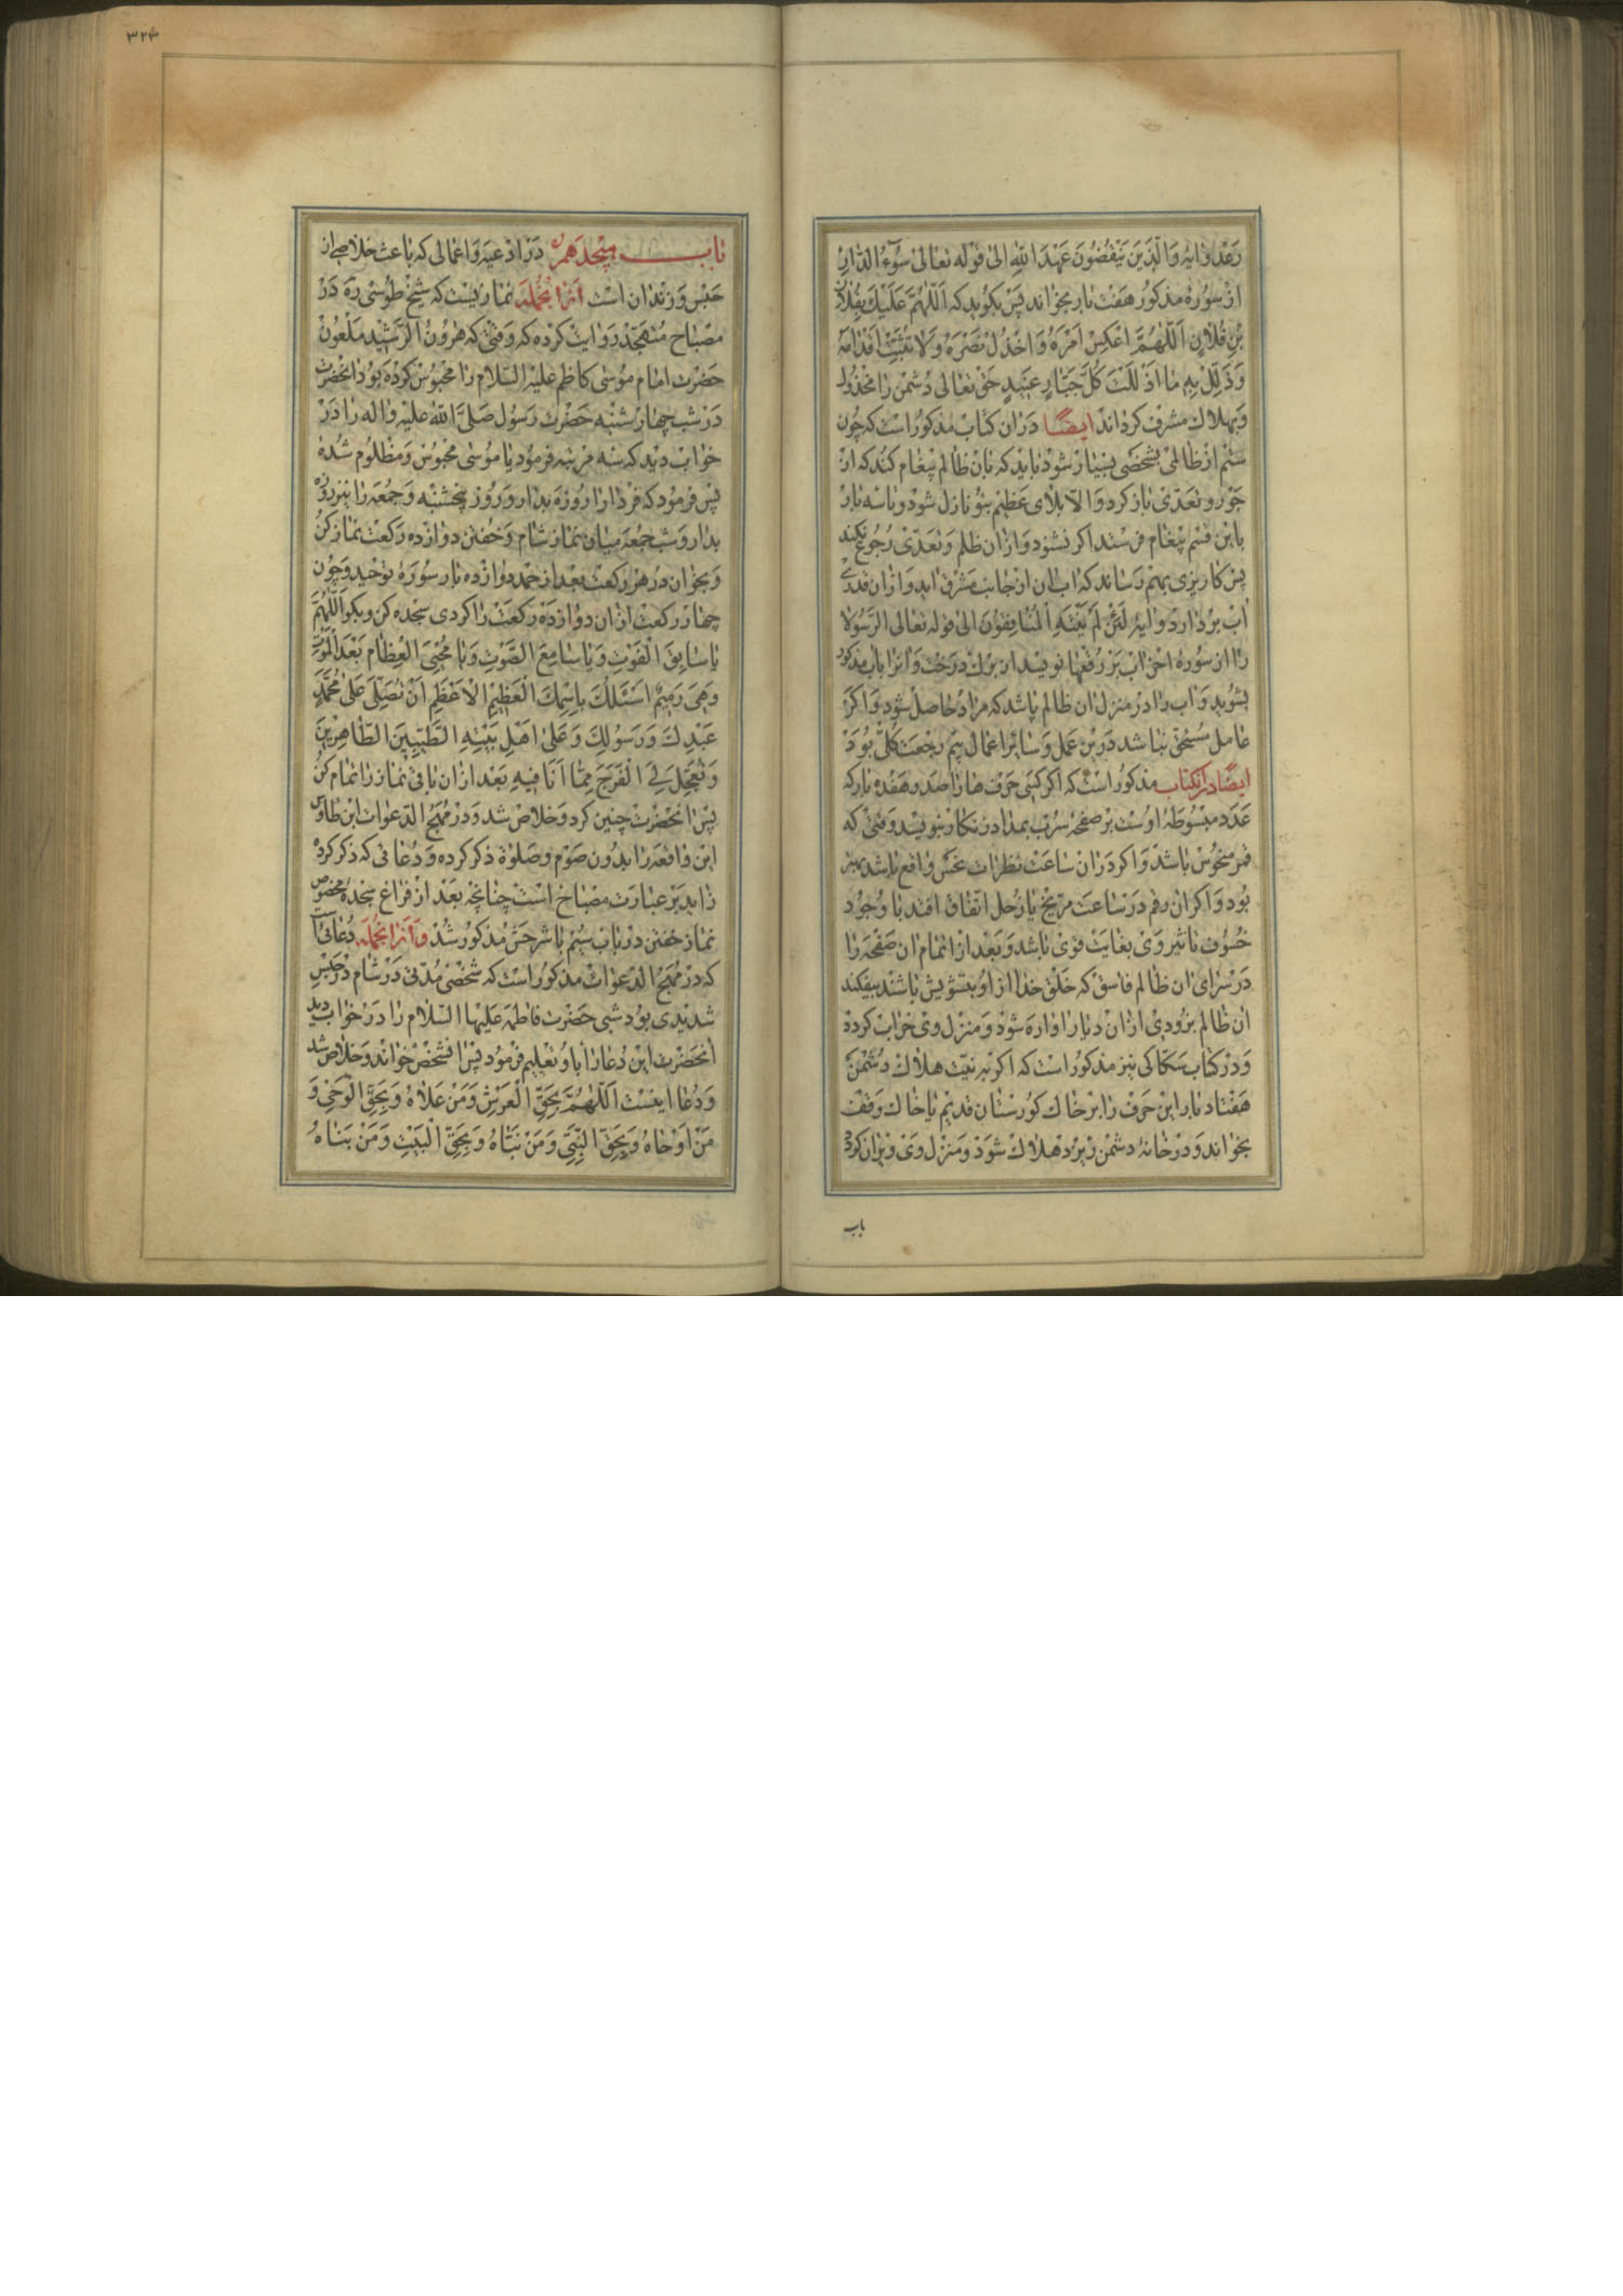 رعد وایهٔ وَالَّذينَ يَنْقُضُونَ عَهْدَ اللهِ الی قوله تعالی سُوۤءُ الدّارِ
از سورهٔ مذکور هفت بار بخواند پس بکوید که اَللّٰهُمَّ عَلَيْكَ بِفُلانِ
بْنِ فُلانٍ اَللّٰهُمَّ اعْكِسْ اَمْرَهُ وَاخْذُلْ نَصْرَهُ وَلا تُثَبِّتْ اَقْدامَهُ
وَذَلِّلْ بِهِ ما اَذْلَلْتَ كُلَّ جَبّارٍ عَنيدٍ حق تعالی دشمن را مخذول
و بهلاك مشرف کرداند ایضًا دران کتاب مذکور است که چون
ستم از ظالمی بشخصی بسیار شود باید که بان ظالم پیغام کند که از
جور و تعدّی باز کرد و الّا بلای عظیم بتو نازل شود و تا سه بار
باین قسم پیغام فرستد اکر نشنود و ازان ظلم و تعدّی رجوع نکند
پس کاریزی بهم رساند که اب ان از جانب مشرق اید و ازان قدری
اب بردارد و ایهٔ لَئِنْ لَمْ يَنْتَهِ الْمُنافِقُونَ الی قوله تعالی الرَّسُولا
را از سورهٔ احزاب بر رقعها نویسد از برك درخت و انرا باب مذکور
بشوید و اب را در منزل ان ظالم پاشد که مراد حاصل شود و اکر
عامل مستحق نباشد درین عمل و سایر اعمال بیم رجعت کلّی بود
ایضًا درانکتاب مذکور است که اکر کسی حرف ها را صد و هفده بار که
عدد مبسوطهٔ اوست بر صفحهٔ سرب بمداد زنکار بنویسد وقتی که
قمر منحوس باشد و اکر دران ساعت نظرات نحس واقع باشد بهتر
بود و اکر ان رقم در ساعت مریخ یا زحل اتفاق افتد با وجود
خسوف تاثیر وی بغایت قوی باشد و بعد از اتمام ان صفحه را
در سرای ان ظالم فاسق که خلق خدا از او بتشویش باشند بیفکند
ان ظالم بزودی ازان دیار اواره شود و منزل وی خراب کردد
و در کتاب سکاکی نیز مذکور است که اکر به نیّت هلاك دشمن
هفتاد بار این حرف را بر خاك کورستان قدیم یا خاك وقف
بخواند و در خانهٔ دشمن ریزد هلاك شود و منزل وی ویران کردد
باب
۳۲۴
باب هیجدهم در ادعیه و اعمالی که باعث خلاصی از
حبس و زندان است ازانجمله نمازیست که شیخ طوسی ره در
مصباح متهجّد روایت کرده که وقتی که هرون الرّشید ملعون
حضرت امام موسی کاظم علیه السّلام را محبوس کرده بود انحضرت
در شب چهارشنبه حضرت رسول صلّی الله علیه واله را در
خواب دید که سه مرتبه فرمود یا موسی محبوس و مظلوم شدهٔ
پس فرمود که فردا را روزه بدار و روز پنجشنبه و جمعه را نیز روزه
بدار و شب جمعه میان نماز شام و خفتن دوازده رکعت نماز کن
و بخوان در هر رکعت بعد از حمد دوازده بار سورهٔ توحید و چون
چهار رکعت ازان دوازده رکعت را کردی سجده کن و بکو اَللّٰهُمَّ
يا سابِقَ الْفَوْتِ وَيا سامِعَ الصَّوْتِ وَيا مُحْيِيَ الْعِظامِ بَعْدَ الْمَوْتِ
وَهِيَ رَميمٌ اَسْئَلُكَ بِاسْمِكَ الْعَظيمِ الْاَعْظَمِ اَنْ تُصَلِّيَ عَلىٰ مُحَمَّدٍ
عَبْدِكَ وَرَسُولِكَ وَعَلىٰ اَهْلِ بَيْتِهِ الطَّيِّبينَ الطّاهِرينَ
وَتُعَجِّلَ لِيَ الْفَرَجَ مِمّا اَنَا فيهِ بعد ازان باقی نماز را تمام کن
پس انحضرت چنین کرد و خلاص شد و در مُهَج الدّعوات ابن طاوس
این واقعه را بدون صوم و صلوة ذکر کرده و دعائی که ذکر کرده
زاید بر عبارت مصباح است چنانچه بعد از فراغ سجدهٔ مخصوص
نماز خفتن در باب سیُم با شرحش مذکور شد و ازانجمله دعائیست
که در مُهَج الدّعوات مذکور است که شخصی مدّتی در شام در حبس
شدیدی بود شبی حضرت فاطمه علیها السّلام را در خواب دید
انحضرت این دعا را باو تعلیم فرمود پس انشخص خواند و خلاص شد
و دعا اینست اَللّٰهُمَّ بِحَقِّ الْعَرْشِ وَمَنْ عَلاهُ وَبِحَقِّ الْوَحْيِ وَ
مَنْ اَوْحاهُ وَبِحَقِّ النَّبِيِّ وَمَنْ نَبَّاهُ وَبِحَقِّ الْبَيْتِ وَمَنْ بَناهُ